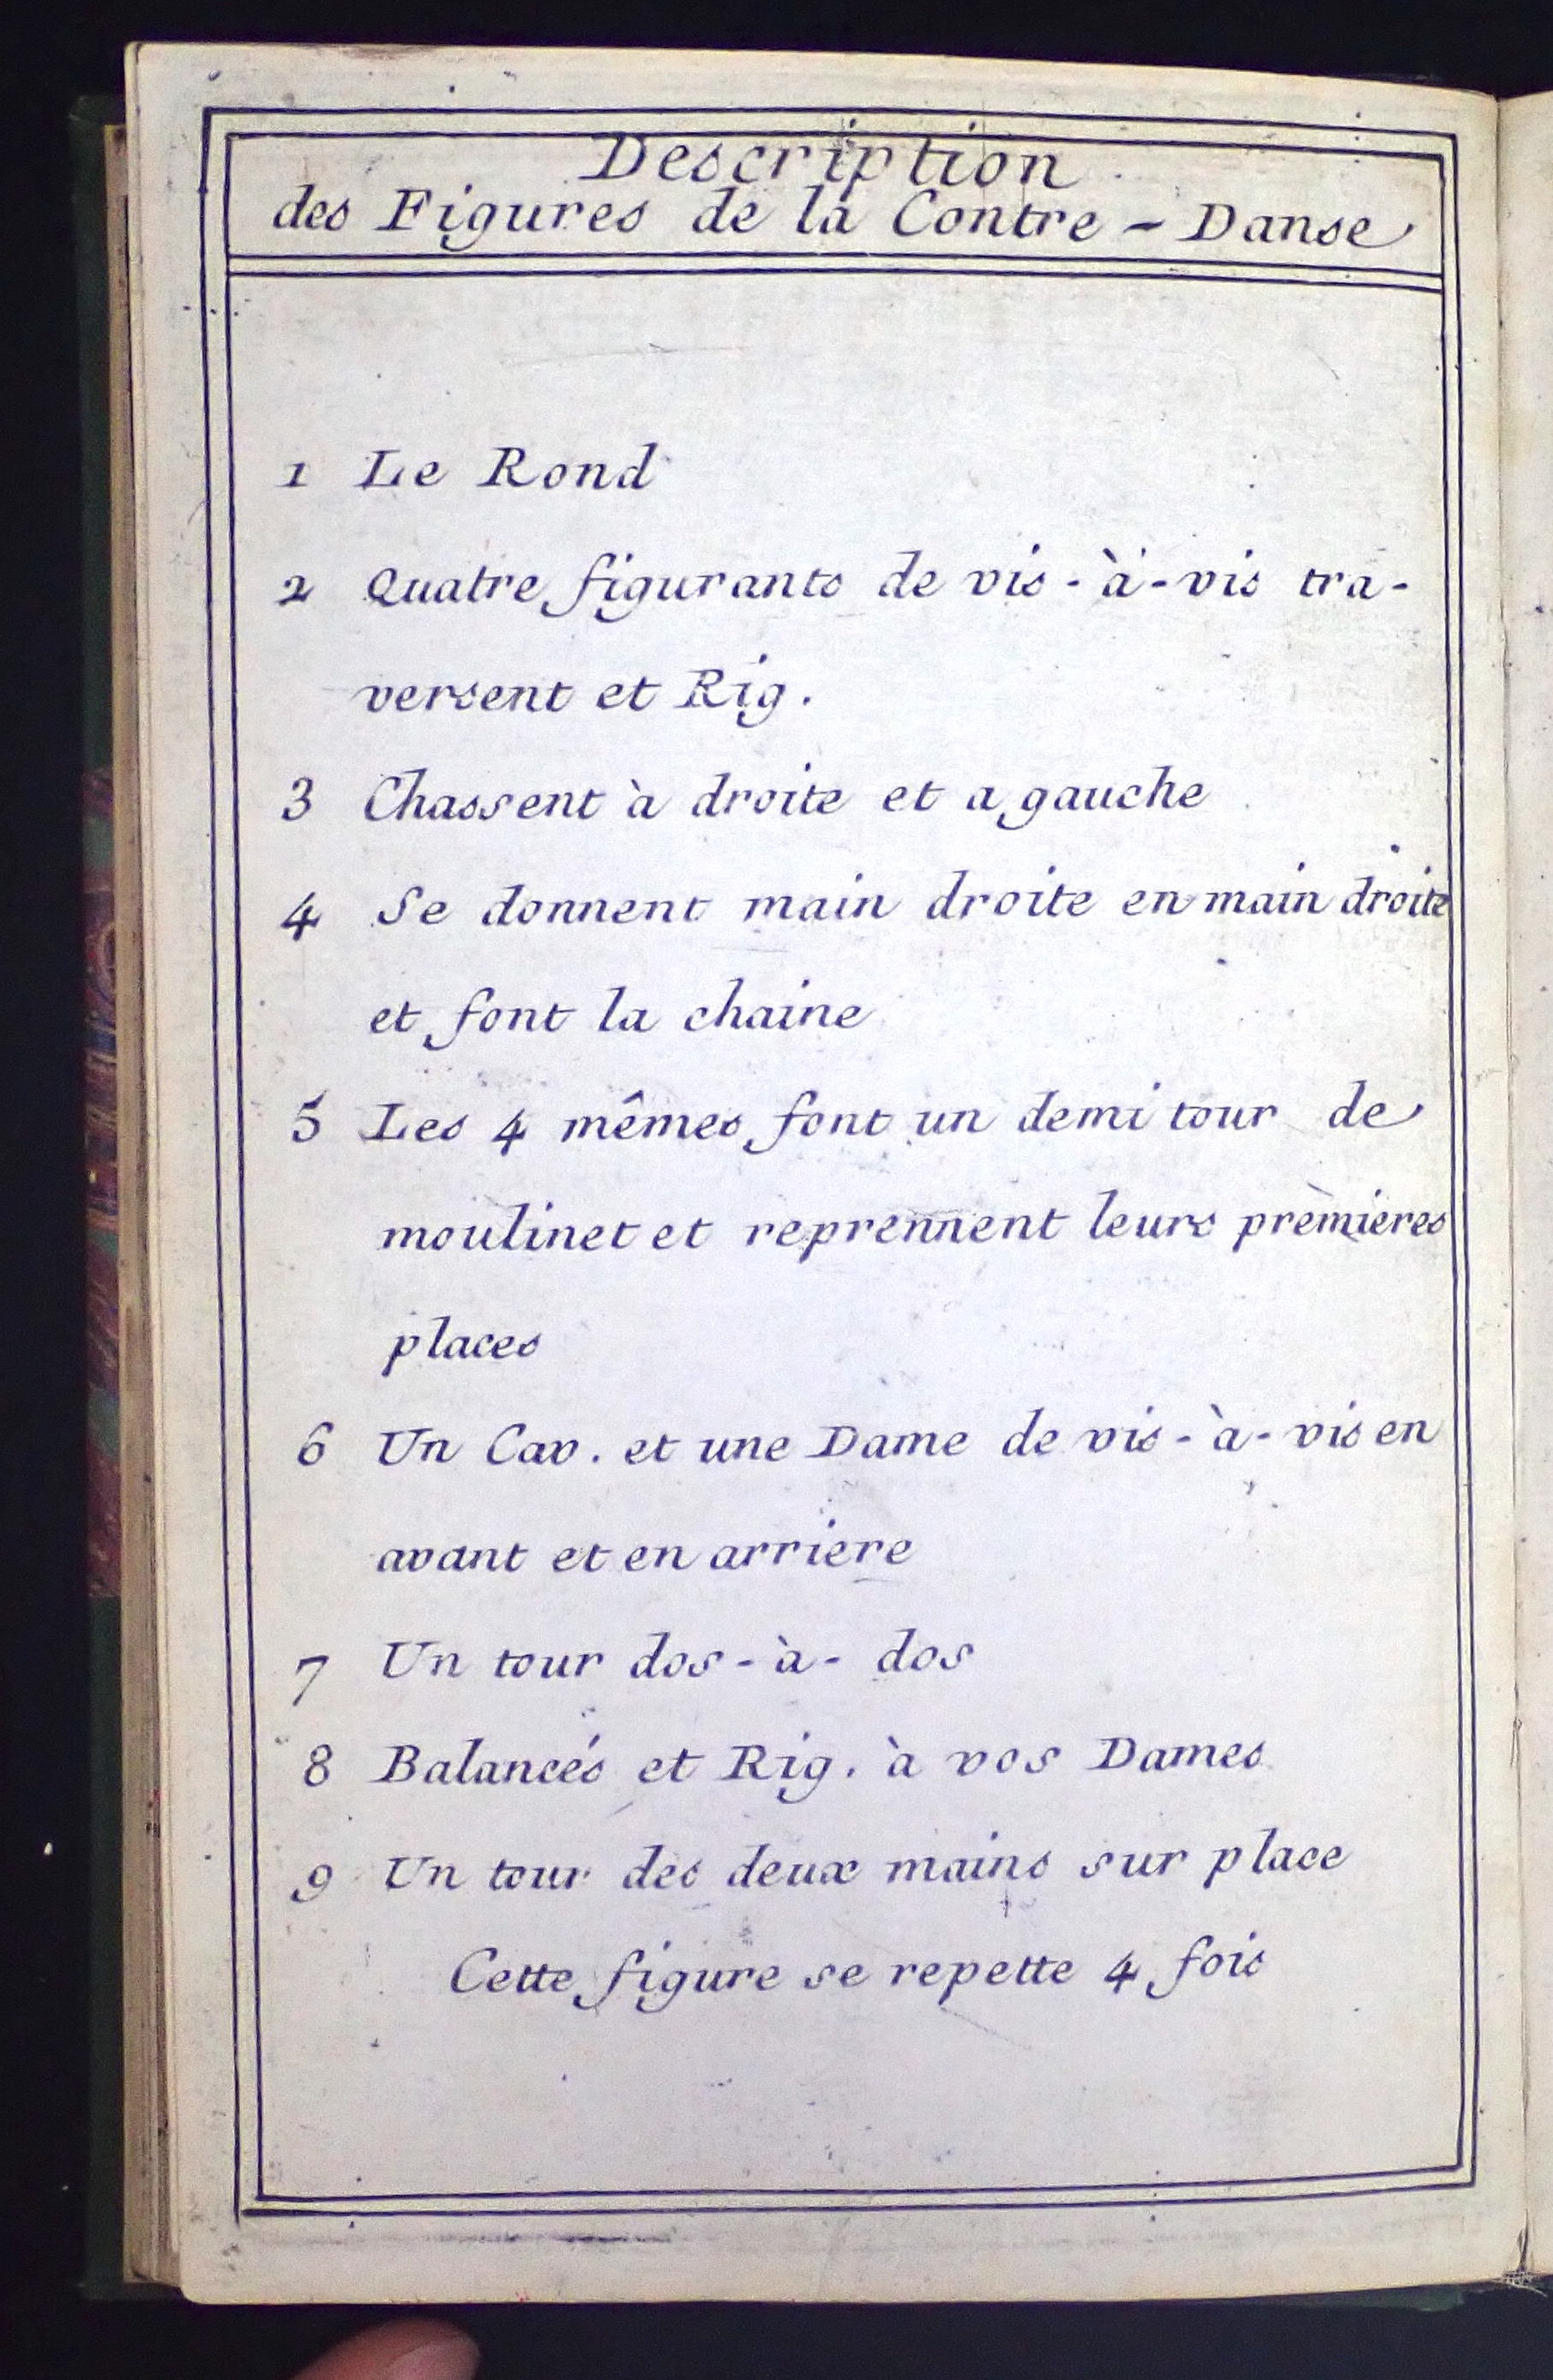 Description
des Figures de la Contre - Danse
1 Le Rond
2 Quatre figurants de vis-à-vis tra-
versent et Rig.
3 Chassent à droite et a gauche
4 Se donnent main droite en main droite
et font la chaine
5 Les 4 mêmes font un demi tour de
moulinet et reprennent leurs prèmieres
places
6 Un Cav. et une Dame de vis-à-vis en
avant et en arriere
7 Un tour dos-à-dos
8 Balancés et Rig. à vos Dames
9 Un tour des deux mains sur place
Cette figure se repette 4 fois